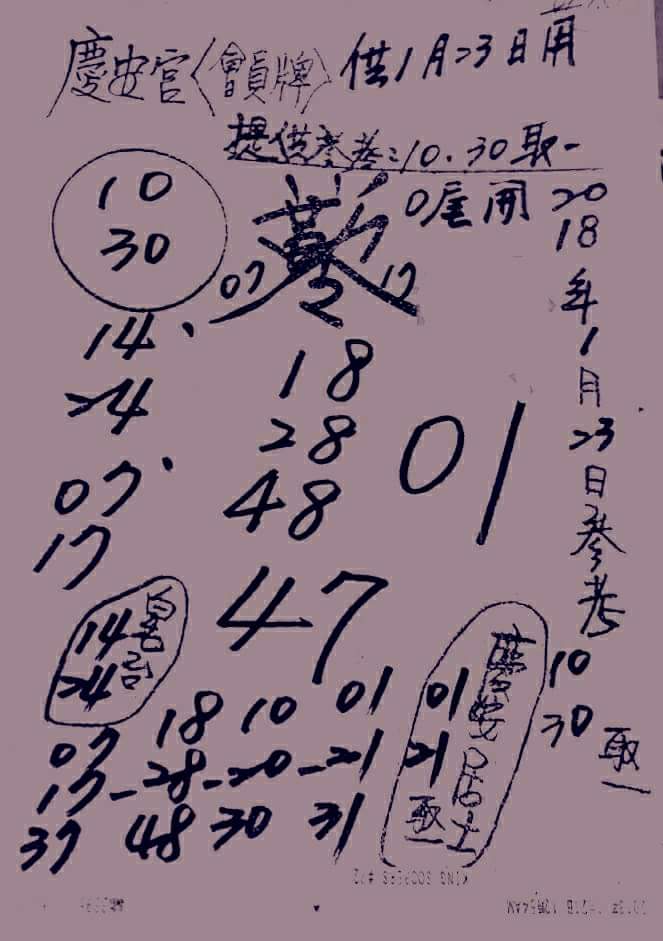 慶安宮〈會員牌〉供1月23日用
提供參考:10.30取一
10
30
0尾開
07 17
2018年1月23日參考
10
30
取一
14、
24
07、
17
18
28
48
01
47
14
24
慶安居士
01
21
取一
07 18 10 01
17-28-20-21
37 48 30 31